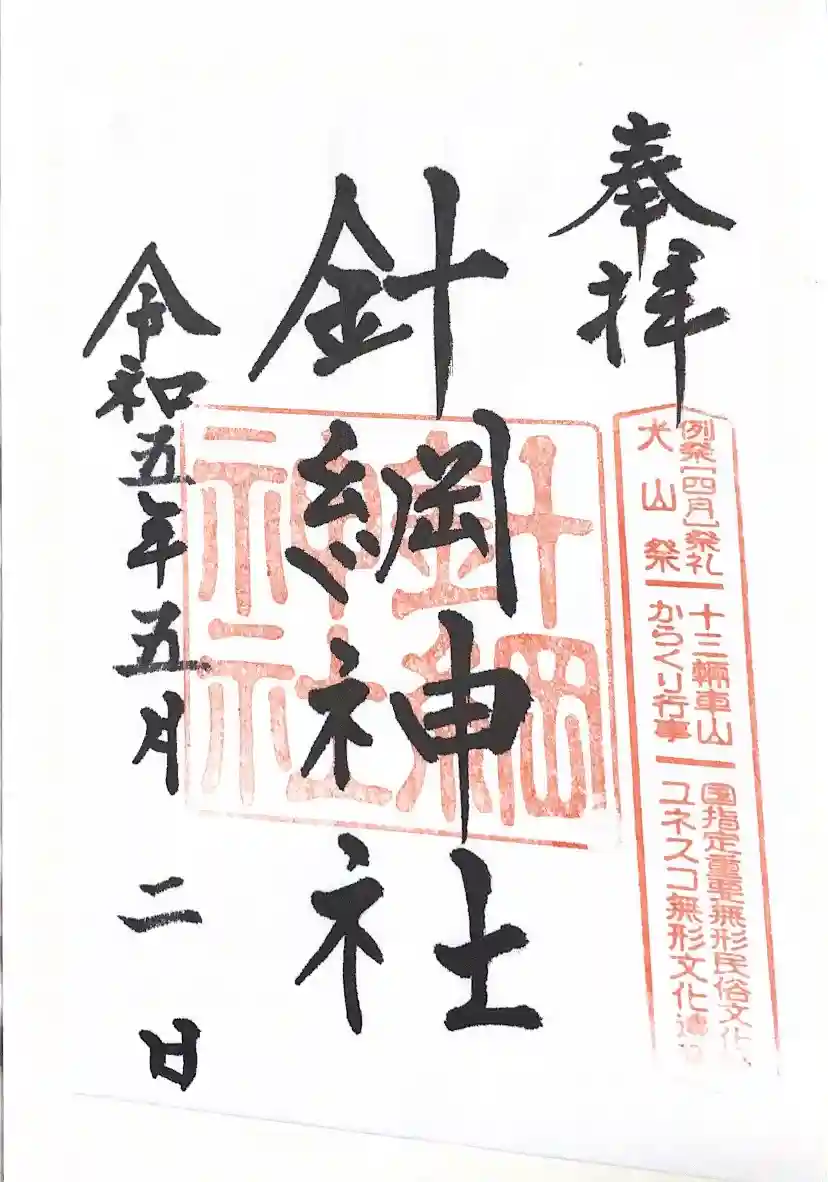 奉拝
例祭[四月]祭礼
犬山祭
十三輛車山
からくり行事
国指定重要無形民俗文化
ユネスコ無形文化遺
針綱神社
針綱神社
令和五年五月二日